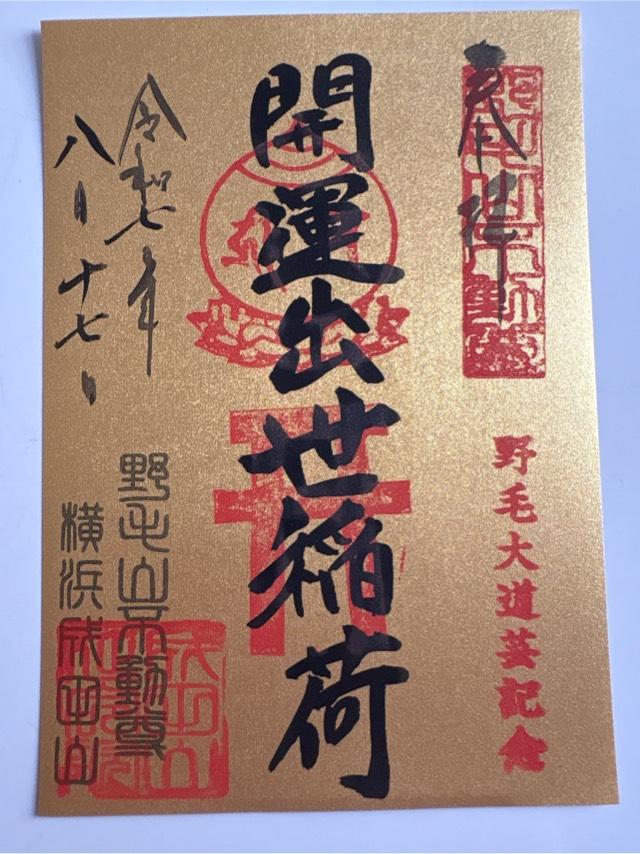 奉拝
野毛山不動尊
野毛大道芸記念
開運出世稲荷
令和七年
八月十七日
野毛山不動尊
横浜成田山